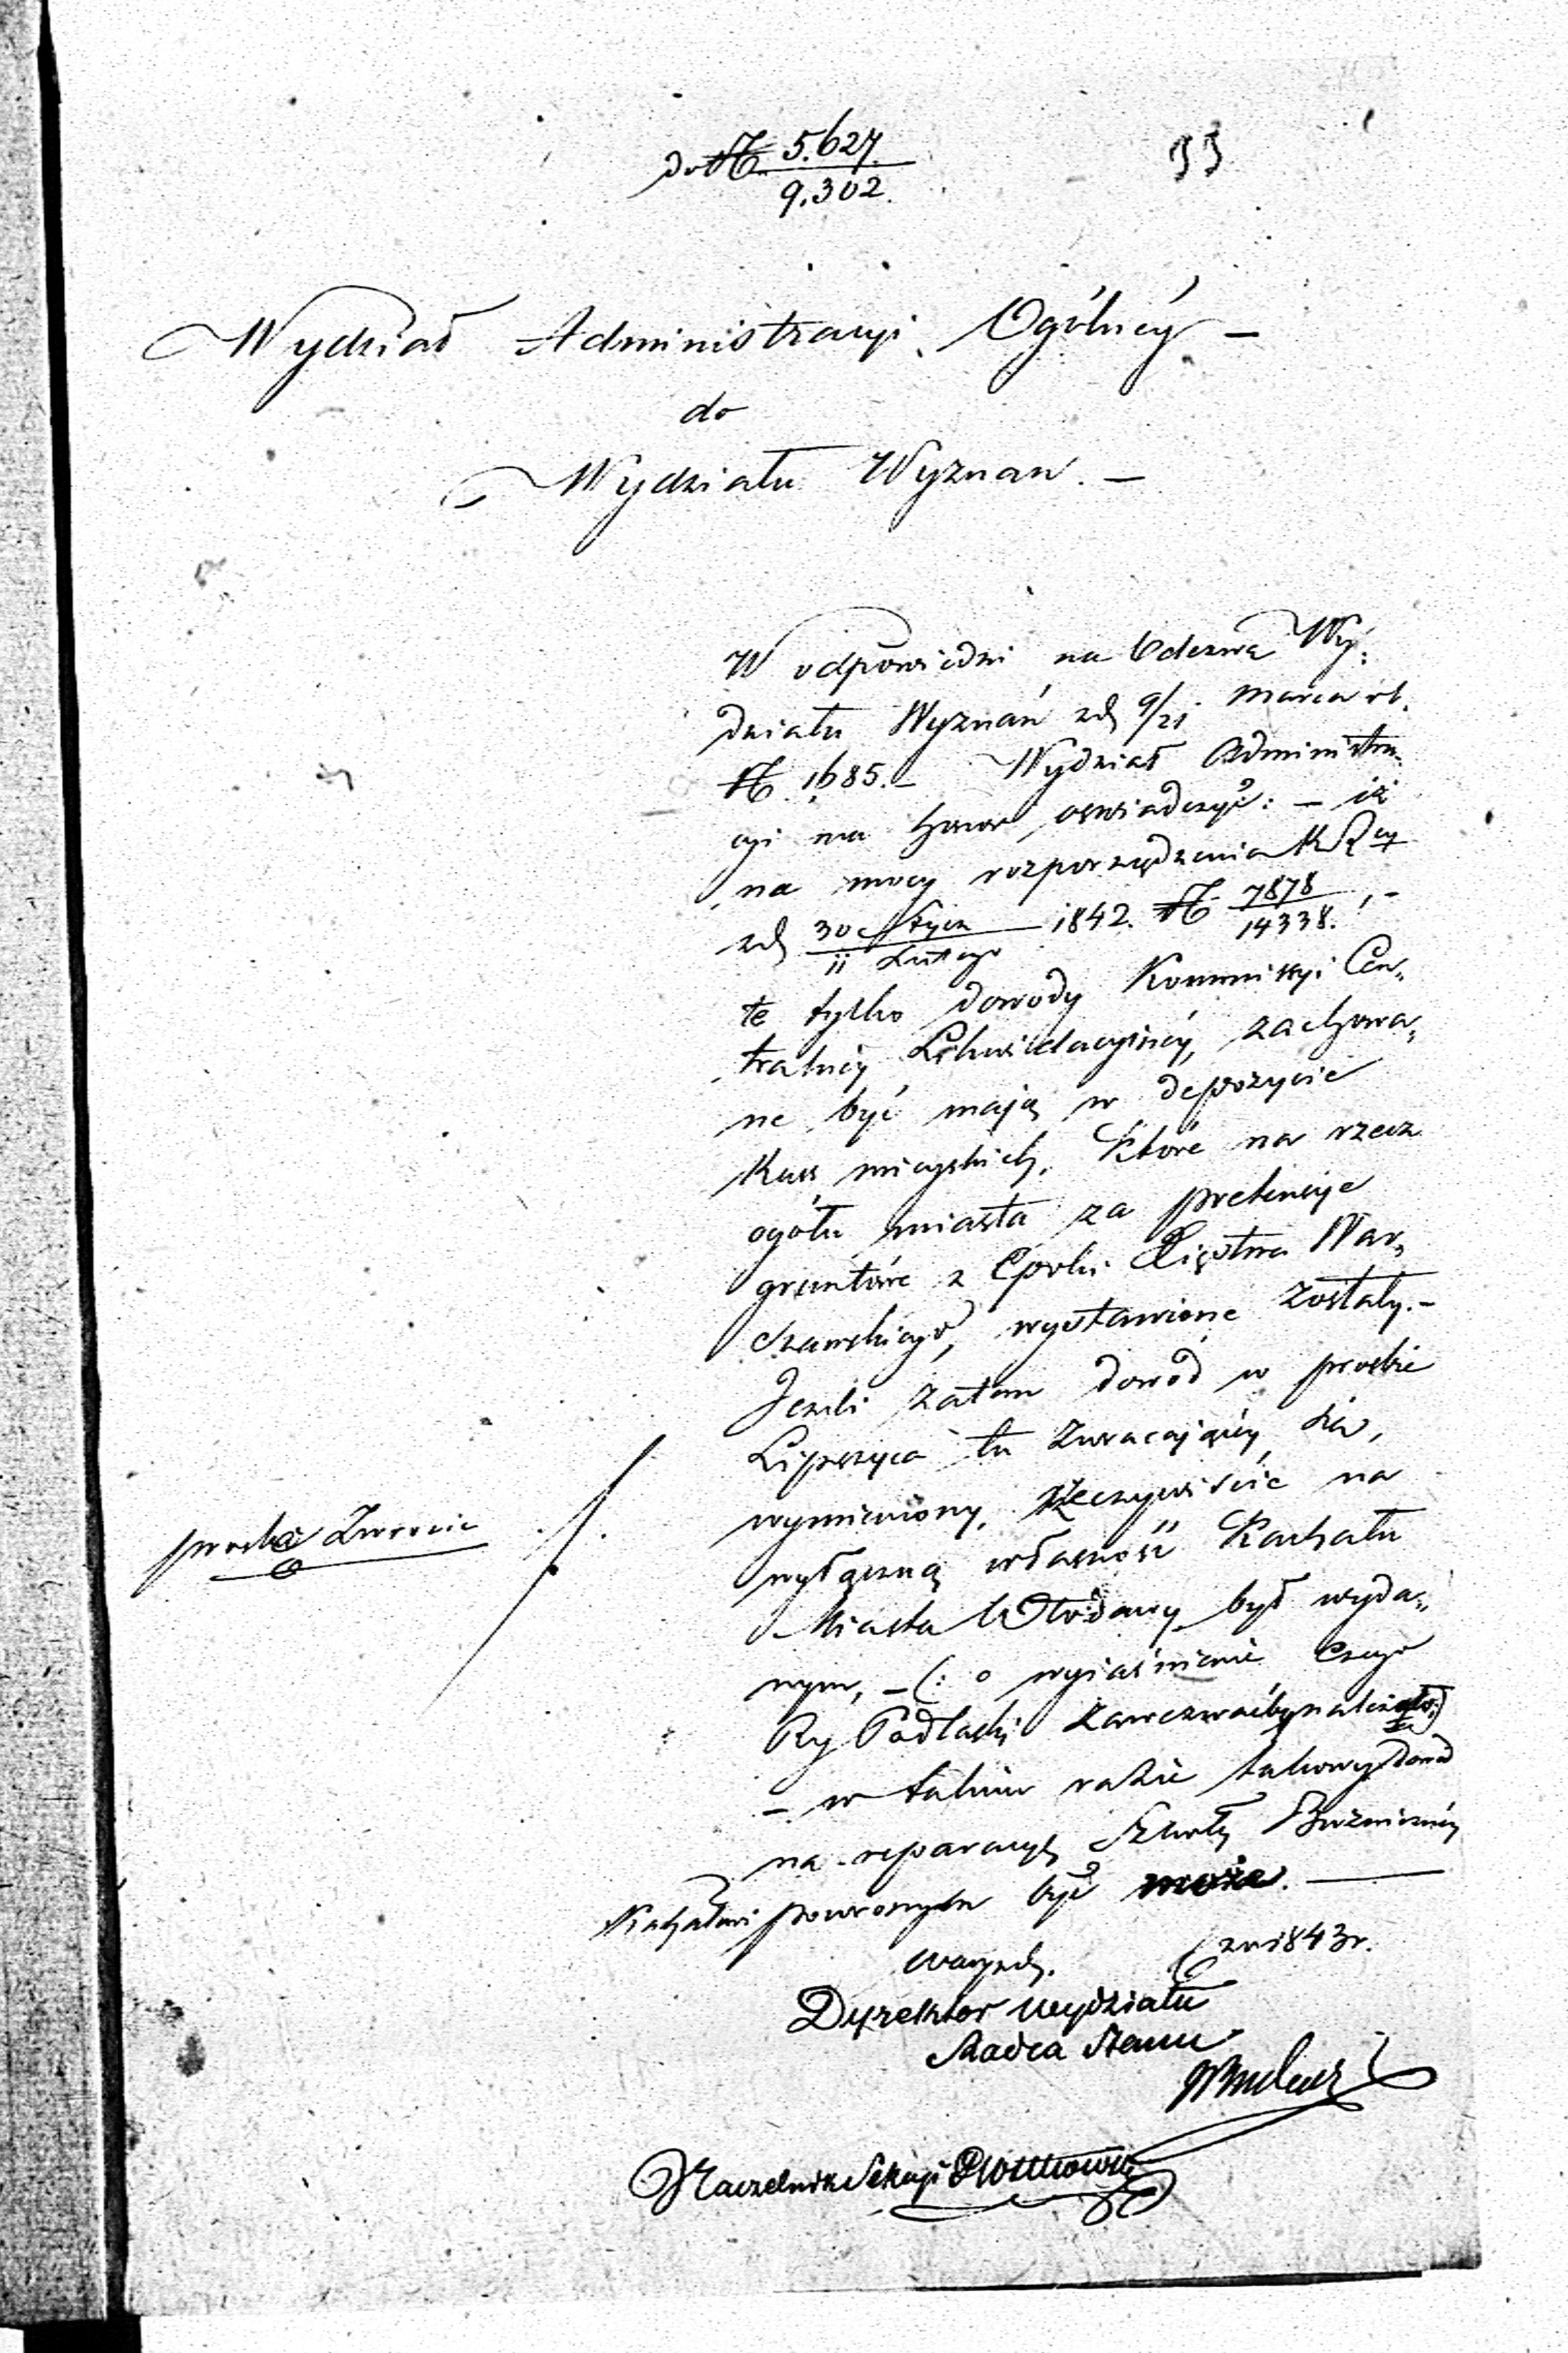 do № 5.627
9.302.
Wydział Administracyi Ogólnéy –
do
Wydziału Wyznań. –
W odpowiedzi na Odezwę Wy„
działu Wyznań z d. 9/21 Marca r b.
№ 1685. – Wydział Administra„
cyi ma honor oświadczyć: – iż
na mocy rozporządzenia K R
z d. 30 Stycz / 11 Lutego 1842. № 7878 / 14338. , –
te tylko dowody Kommissyi Cen„
tralnéy Likwidacyinéy, zachowa„
ne być mają w depozycie
Kass mieyskich, które na rzecz
ogółu miasta za pretensye
gruntowe z Epoki Xięstwa War„
szawskiego, wystawione zostały. –
Jeżeli zatem dowód w prośbie
Lipszyca tu zwracającéy się,
wymieniony, rzeczywiście na
wyłączną własność Kachału
Miasta Włodawy był wyda„
nym, – (: o wyiaśnienie czego
Rz Podlaski zawezwać by należało :)
– w takim razie takowy dowód
na reparacyę Szkoły Bóżniczney
Kachałowi powróconym być może. –
prośbę Zwrócić
Warsz d. 1843 r.
Dyrektor Wydziału
Radca Stanu
Naczelnik Sekcyi